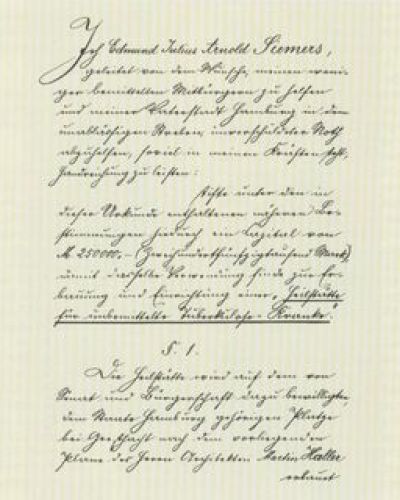 Ich Edmund Julius Arnold Siemers,
geleitet von dem Wunsche, meinen weni-
ger bemittelten Mitbürgern zu helfen
und meiner Vaterstadt Hamburg in dem
unablässigen Streben, unverschuldeter Noth
abzuhelfen, soviel in meinen Kräften steht,
Handreichung zu leisten:
stifte unter den in
dieser Urkunde enthaltenen näheren Be-
stimmungen hiedurch ein Capital von
M. 250000.– (Zweihundertfünfzigtausend Mark)
damit dasselbe Verwendung finde zur Er-
bauung und Einrichtung einer „Heilstätte
für unbemittelte Tuberkulose-Kranke".
§. 1.
Die Heilstätte wird auf dem von
Senat und Bürgerschaft dazu bewilligten
dem Staate Hamburg gehörigen Platze
bei Geesthacht nach dem vorliegenden
Plane des Herrn Architekten Martin Haller
erbaut